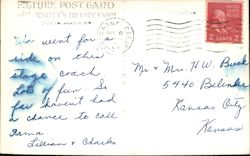 PICTURE POST CARD
KNOTT'S BERRY FARM
We went for a
ride on this
stage coach
Lots of fun. So
far haven't had
a chance to call
Lillian & Charles
Mr & Mrs. H.W. Buck
5440
Kansas City
Kansas
2 CENTS 2